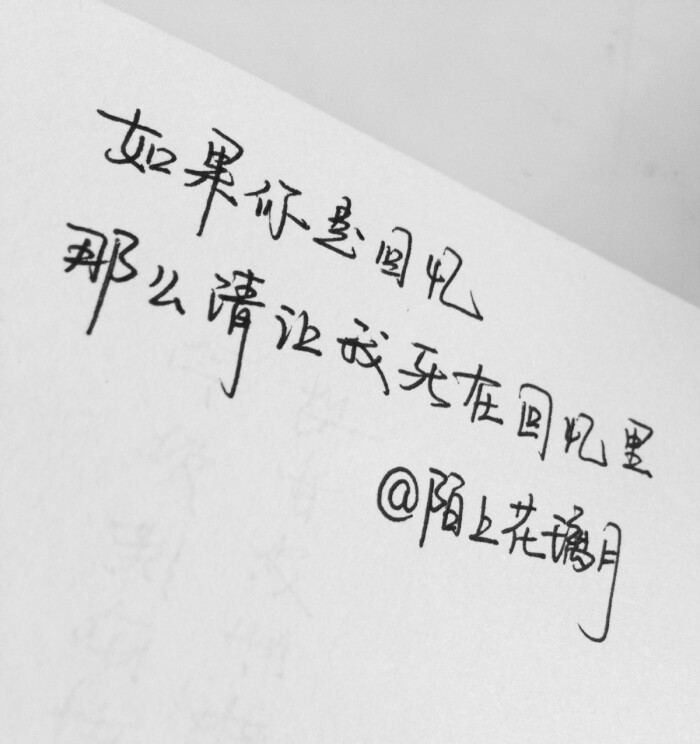 如果你是回忆
那么请让我死在回忆里
@陌上花璃月